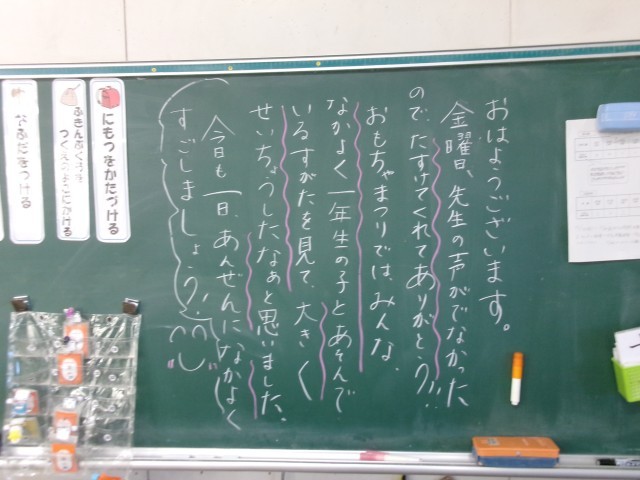 おはようございます。
金曜日、先生の声がでなかった
ので、たすけてくれてありがとう!!
おもちゃまつりでは、みんな、
なかよく一年生の子とあそんで
いるすがたを見て、大きく
せいちょうした、なぁと思いました。
今日も一日、あんぜんに、なかよく
すごしましょう!
にもつをかたづける
ふきんぶくろを
つくえのよこにかける
なふだをつける